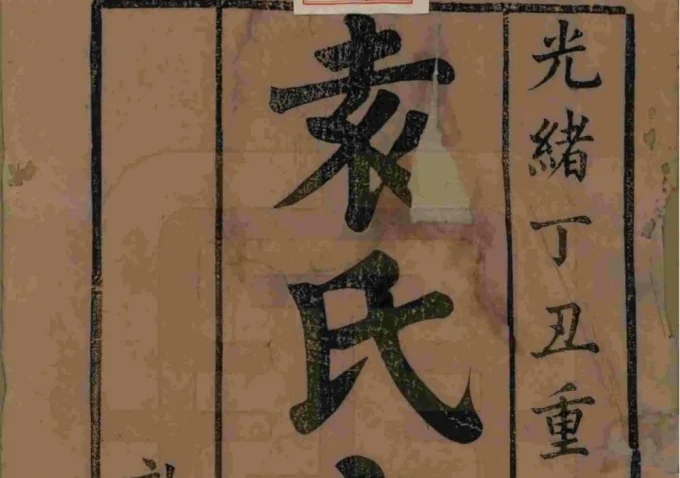 光緒丁丑重
袁氏